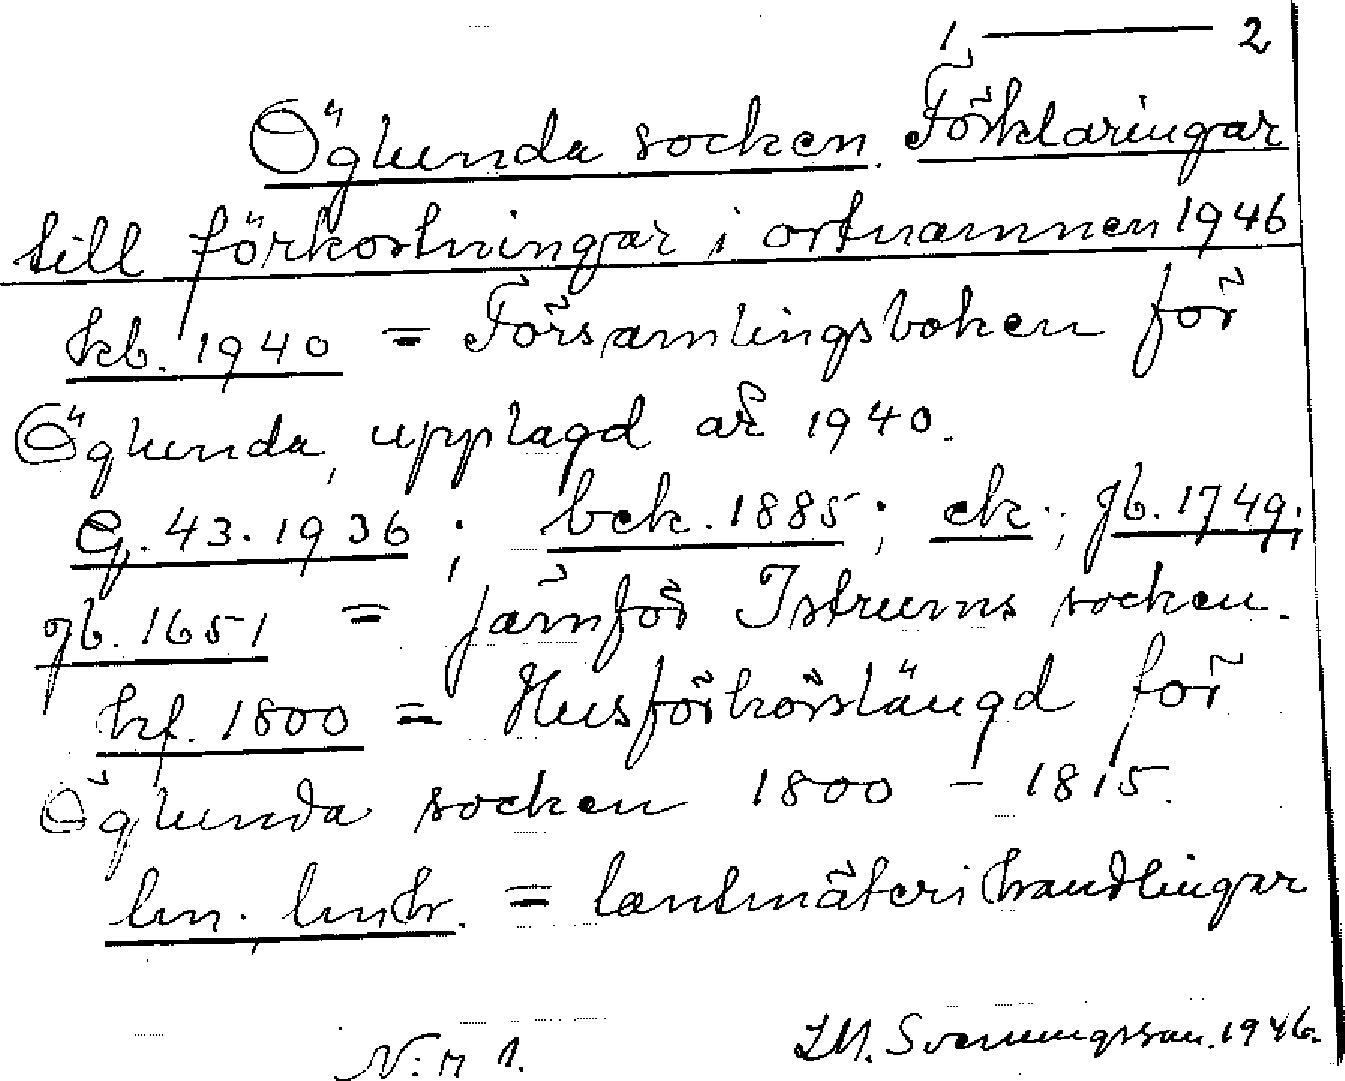 1 ——— 2
Öglunda socken. Förklaringar
till förkortningar i ortnamnen 1946
kb. 1940 = Församlingsboken för
Öglunda, upplagd år 1940.
E. 43. 1936 ; bck. 1885 ; ck ; jb. 1749 ;
jb. 1651 = jämför Istrums socken.
hf. 1800 = Husförhörslängd för
Öglunda socken 1800 – 1815.
lm. lmh. = lantmäterihandlingar
N:r 1.
Svenningsson. 1946.